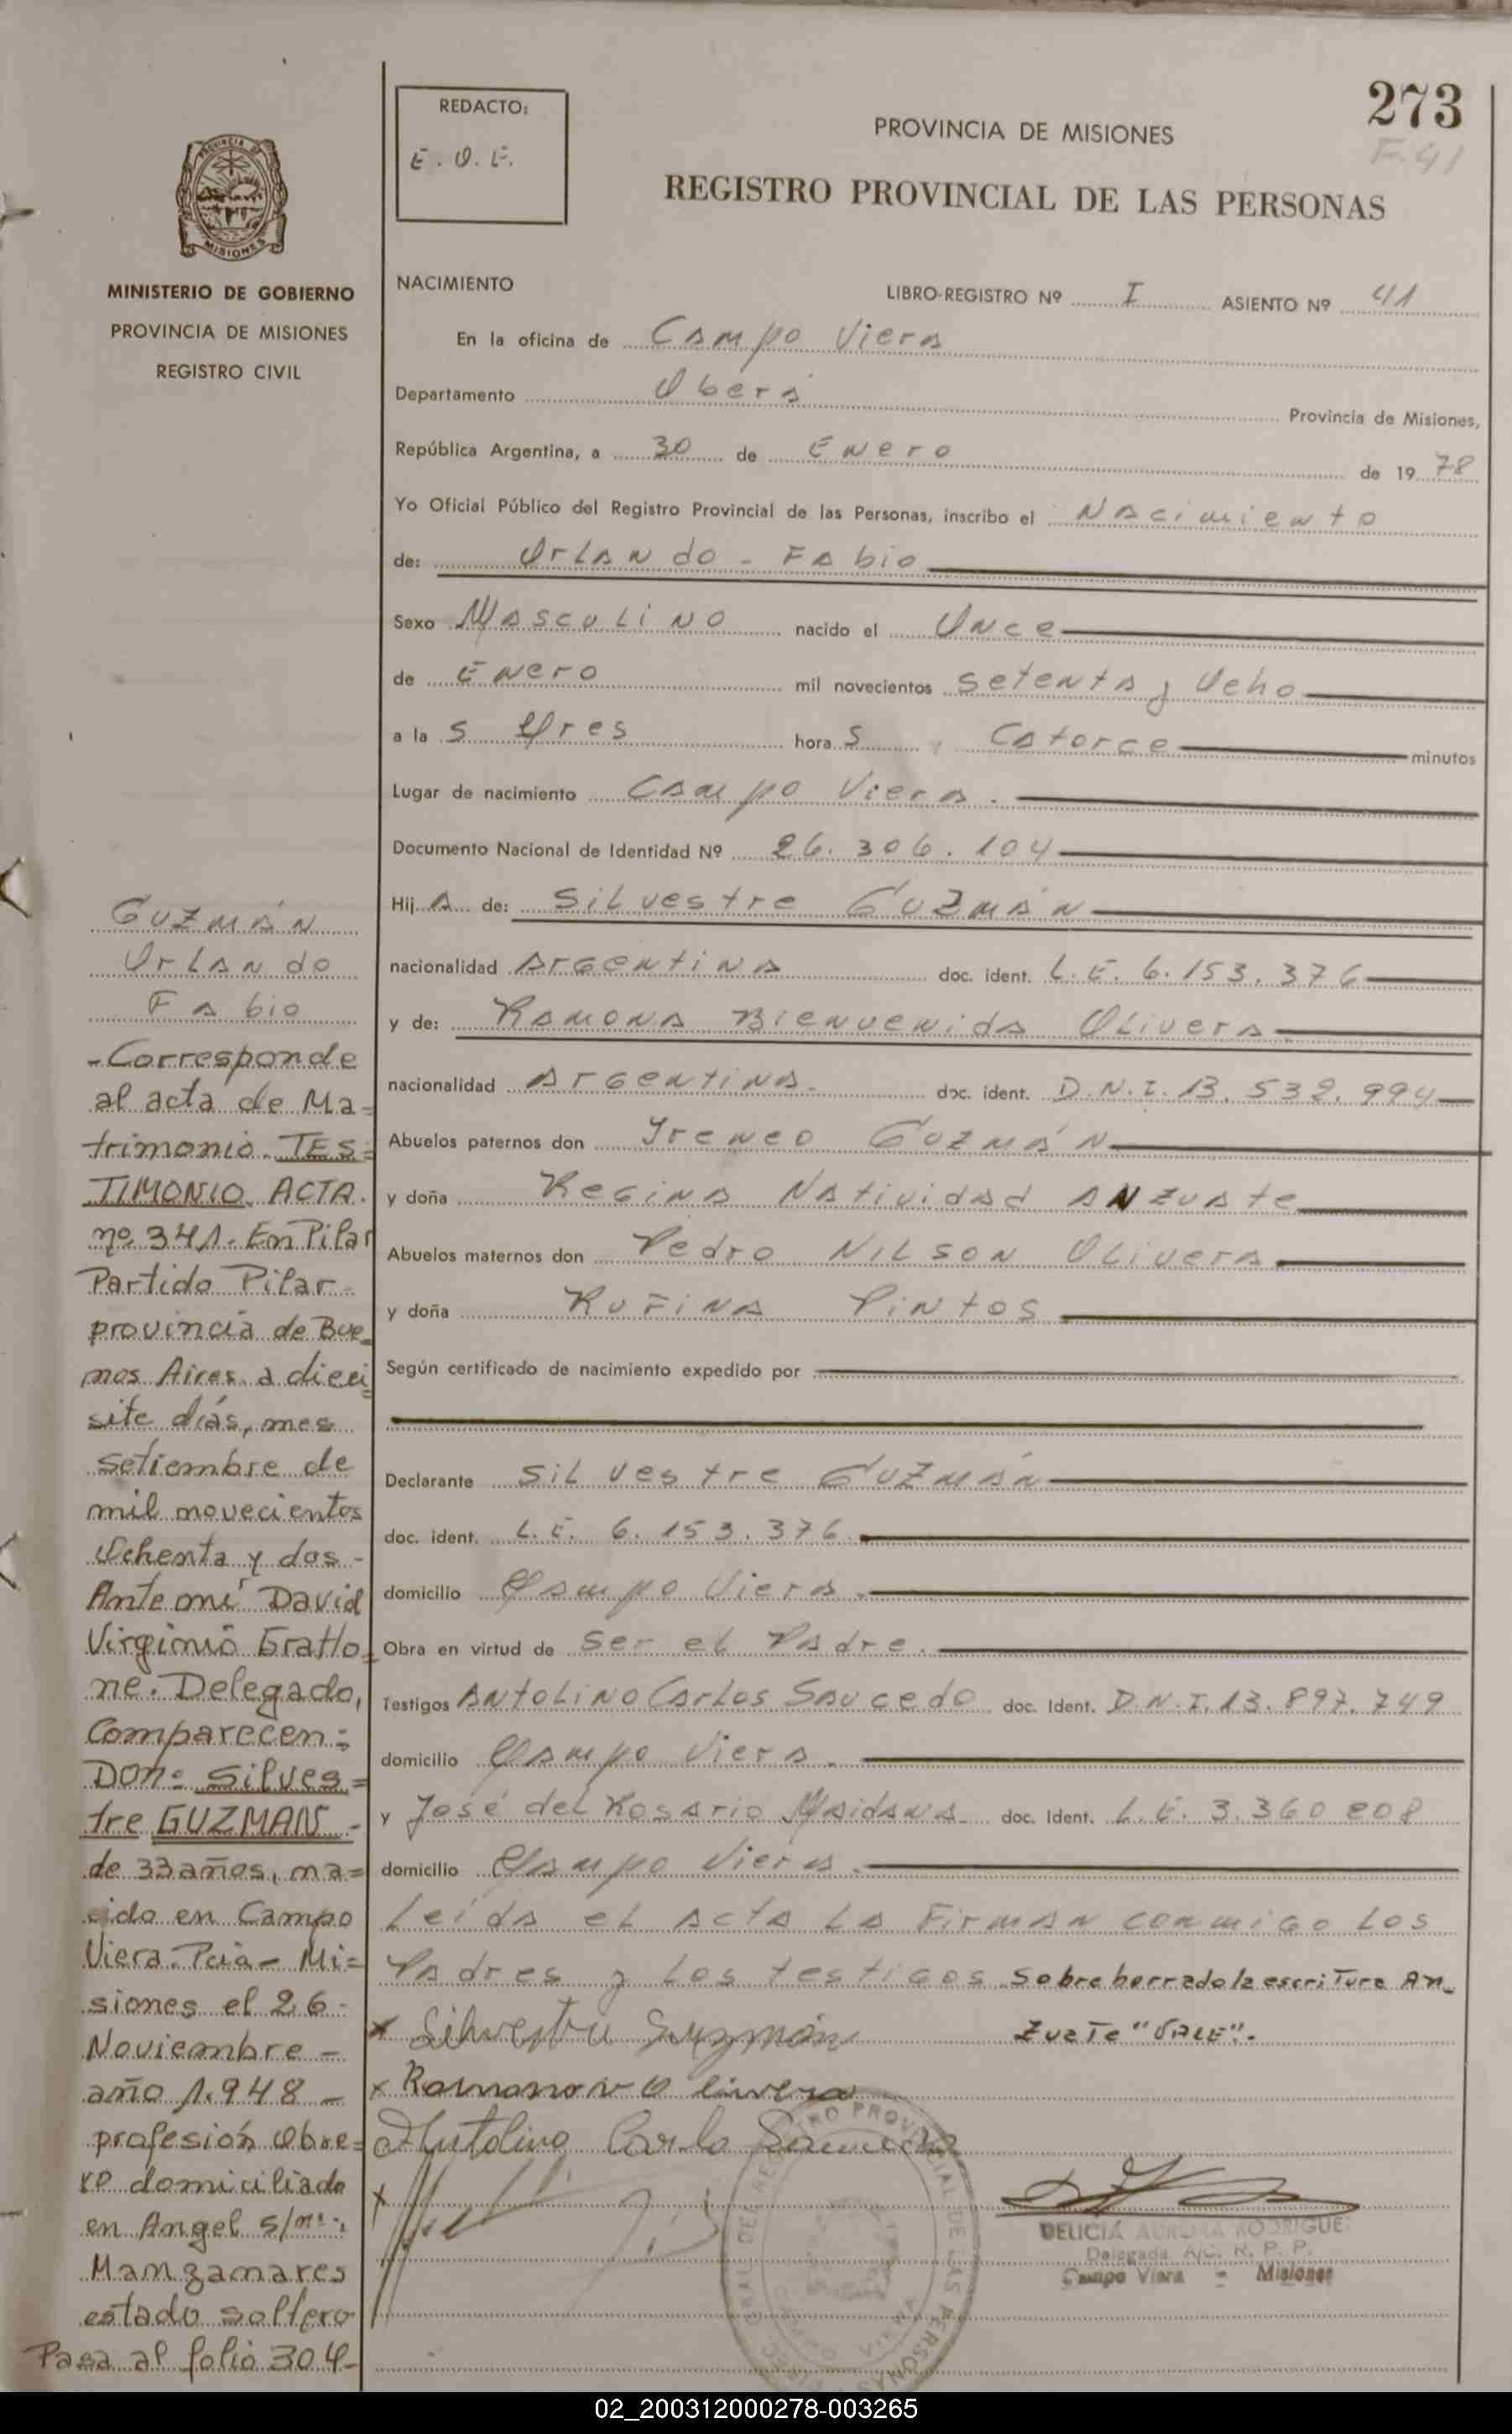 273
F. 41
REDACTO:
E. O. E.
PROVINCIA DE MISIONES
REGISTRO PROVINCIAL DE LAS PERSONAS
PROVINCIA DE
MISIONES
MINISTERIO DE GOBIERNO
PROVINCIA DE MISIONES
REGISTRO CIVIL
NACIMIENTO
LIBRO-REGISTRO Nº I ASIENTO Nº 41
En la oficina de Campo Viera
Departamento Oberá Provincia de Misiones,
República Argentina, a 30 de Enero de 19 78
Yo Oficial Público del Registro Provincial de las Personas, inscribo el Nacimiento
de: Orlando - Fabio
Sexo Masculino nacido el Once
de Enero mil novecientos setenta y Ocho
a la s Tres hora s, Catorce minutos
Lugar de nacimiento Campo Viera.
Documento Nacional de Identidad Nº 26.306.104
Hij o de: Silvestre Guzmán
nacionalidad Argentina doc. ident. L.E. 6.153.376
y de: Ramona Bienvenida Olivera
nacionalidad Argentina. doc. ident. D.N.I. 13.532.994
Abuelos paternos don Ireneo Guzmán
y doña Regina Natividad Anzuate
Abuelos maternos don Pedro Nilson Olivera
y doña Rufina Pintos
Según certificado de nacimiento expedido por
Declarante Silvestre Guzmán
doc. ident. L.E. 6.153.376
domicilio Campo Viera.
Obra en virtud de Ser el Padre.
Testigos Antolino Carlos Saucedo doc. Ident. D.N.I. 13.897.749
domicilio Campo Viera.
y José del Rosario Maidana doc. Ident. L.E. 3.360.808
domicilio Campo Viera.
Leida el acta la firman conmigo los
Padres y los testigos sobre borrado la escritura An_
zuate "VALE".-
x Silvestre Guzmán
x Ramona B Olivera
Antolino Carlo Saucedo
x
DELICIA AURORA RODRIGUE
Delegada A/C. R. P. P.
Campo Viera - Misiones
Guzmán
Orlando
Fabio
-Corresponde
al acta de Ma=
trimonio. TES=
TIMONIO. ACTA.
nº 341. En Pilar
Partido Pilar
provincia de Bue_
nos Aires. a dieci=
site días, mes
setiembre de
mil novecientos
Ochenta y dos -
Ante mí David
Virginio Gratto=
ne. Delegado,
Comparecen:
Don: Silves=
tre GUZMAN -
de 33 años, na=
cido en Campo
Viera. Pcia - Mi=
siones el 26 -
Noviembre -
año 1.948 -
profesión Obre=
ro domiciliado
en Angel s/nº.,
Manzanares
estado soltero
Pasa al folio 304-
02_200312000278-003265